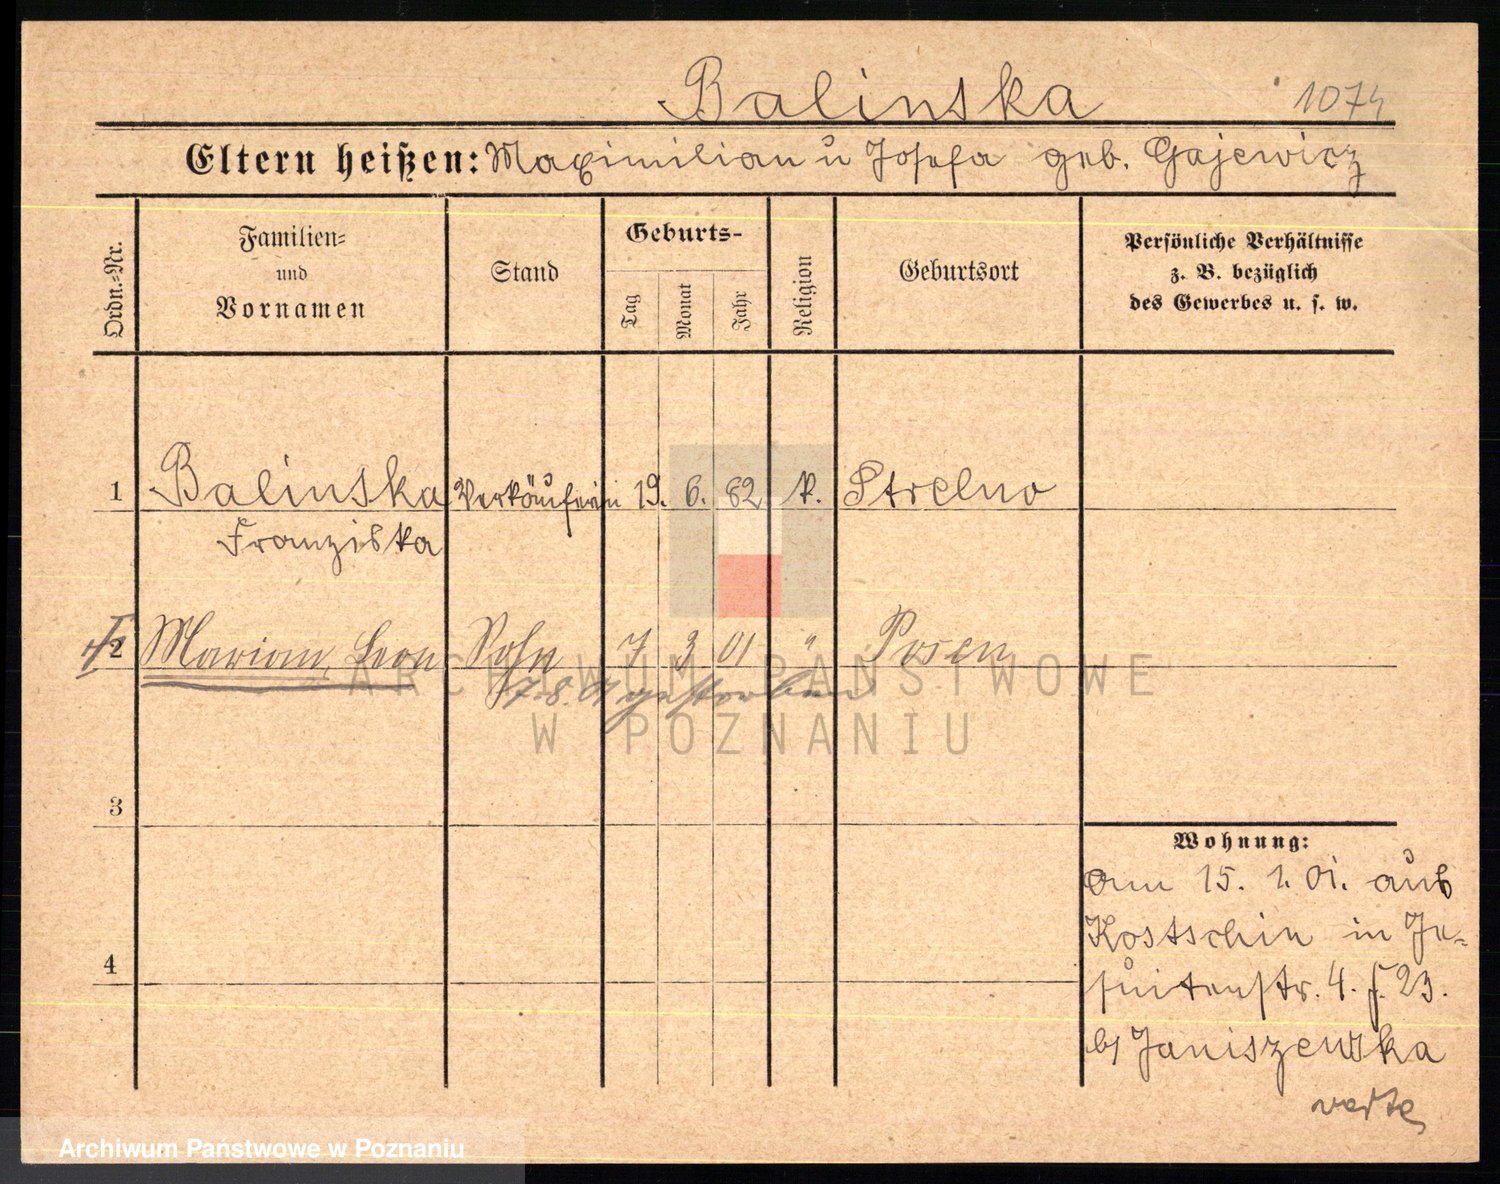 Balinska 1074
Eltern heißen: Maximilian u Josefa geb. Gajewicz
Ordn.-Nr.
Familien- und Vornamen
Stand
Geburts-
Tag Monat Jahr
Religion
Geburtsort
Persönliche Verhältnisse
z. B. bezüglich
des Gewerbes u. s. w.
1 Balinska Verkäuferin 19. 6. 82 k. Strelno
Franziska
2 Marian, Leon Sohn 7 3 01 " Posen
7.8.01 gestorben
3
4
Wohnung:
am 15. 1. 01. aus
Kostschin in Je-
suitenstr. 4. f. 23.
b/ Janiszewska
verte
ARCHIWUM PAŃSTWOWE
W POZNANIU
Archiwum Państwowe w Poznaniu